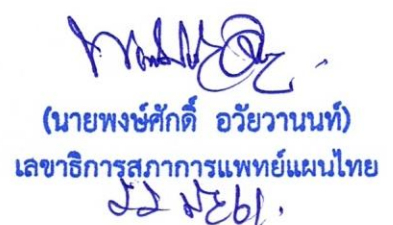 (นายพงษ์ศักดิ์ อวัยวานนท์)
เลขาธิการสภาการแพทย์แผนไทย